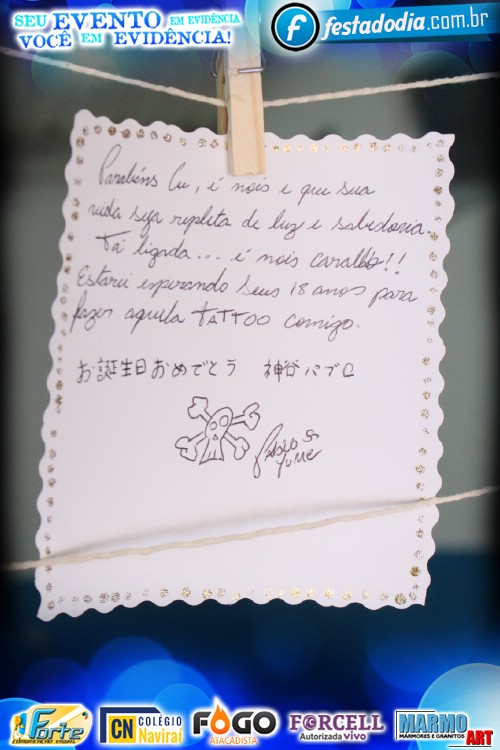 SEU EVENTO EM EVIDÊNCIA
VOCÊ EM EVIDÊNCIA!
f festadodia.com.br
Parabéns Lu, é nois e que sua
vida seja repleta de luz e sabedoria.
Tá ligada... é nois caralho!!
Estarei esperando seus 18 anos para
fazer aquela TATTOO comigo.
お誕生日おめでとう 神谷パブロ
Pablo
Forte
COMUNICAÇÃO VISUAL
CN COLÉGIO Naviraí
FOGO ATACADISTA
FORCELL
Autorizada vivo
MARMO ART
MÁRMORES E GRANITOS